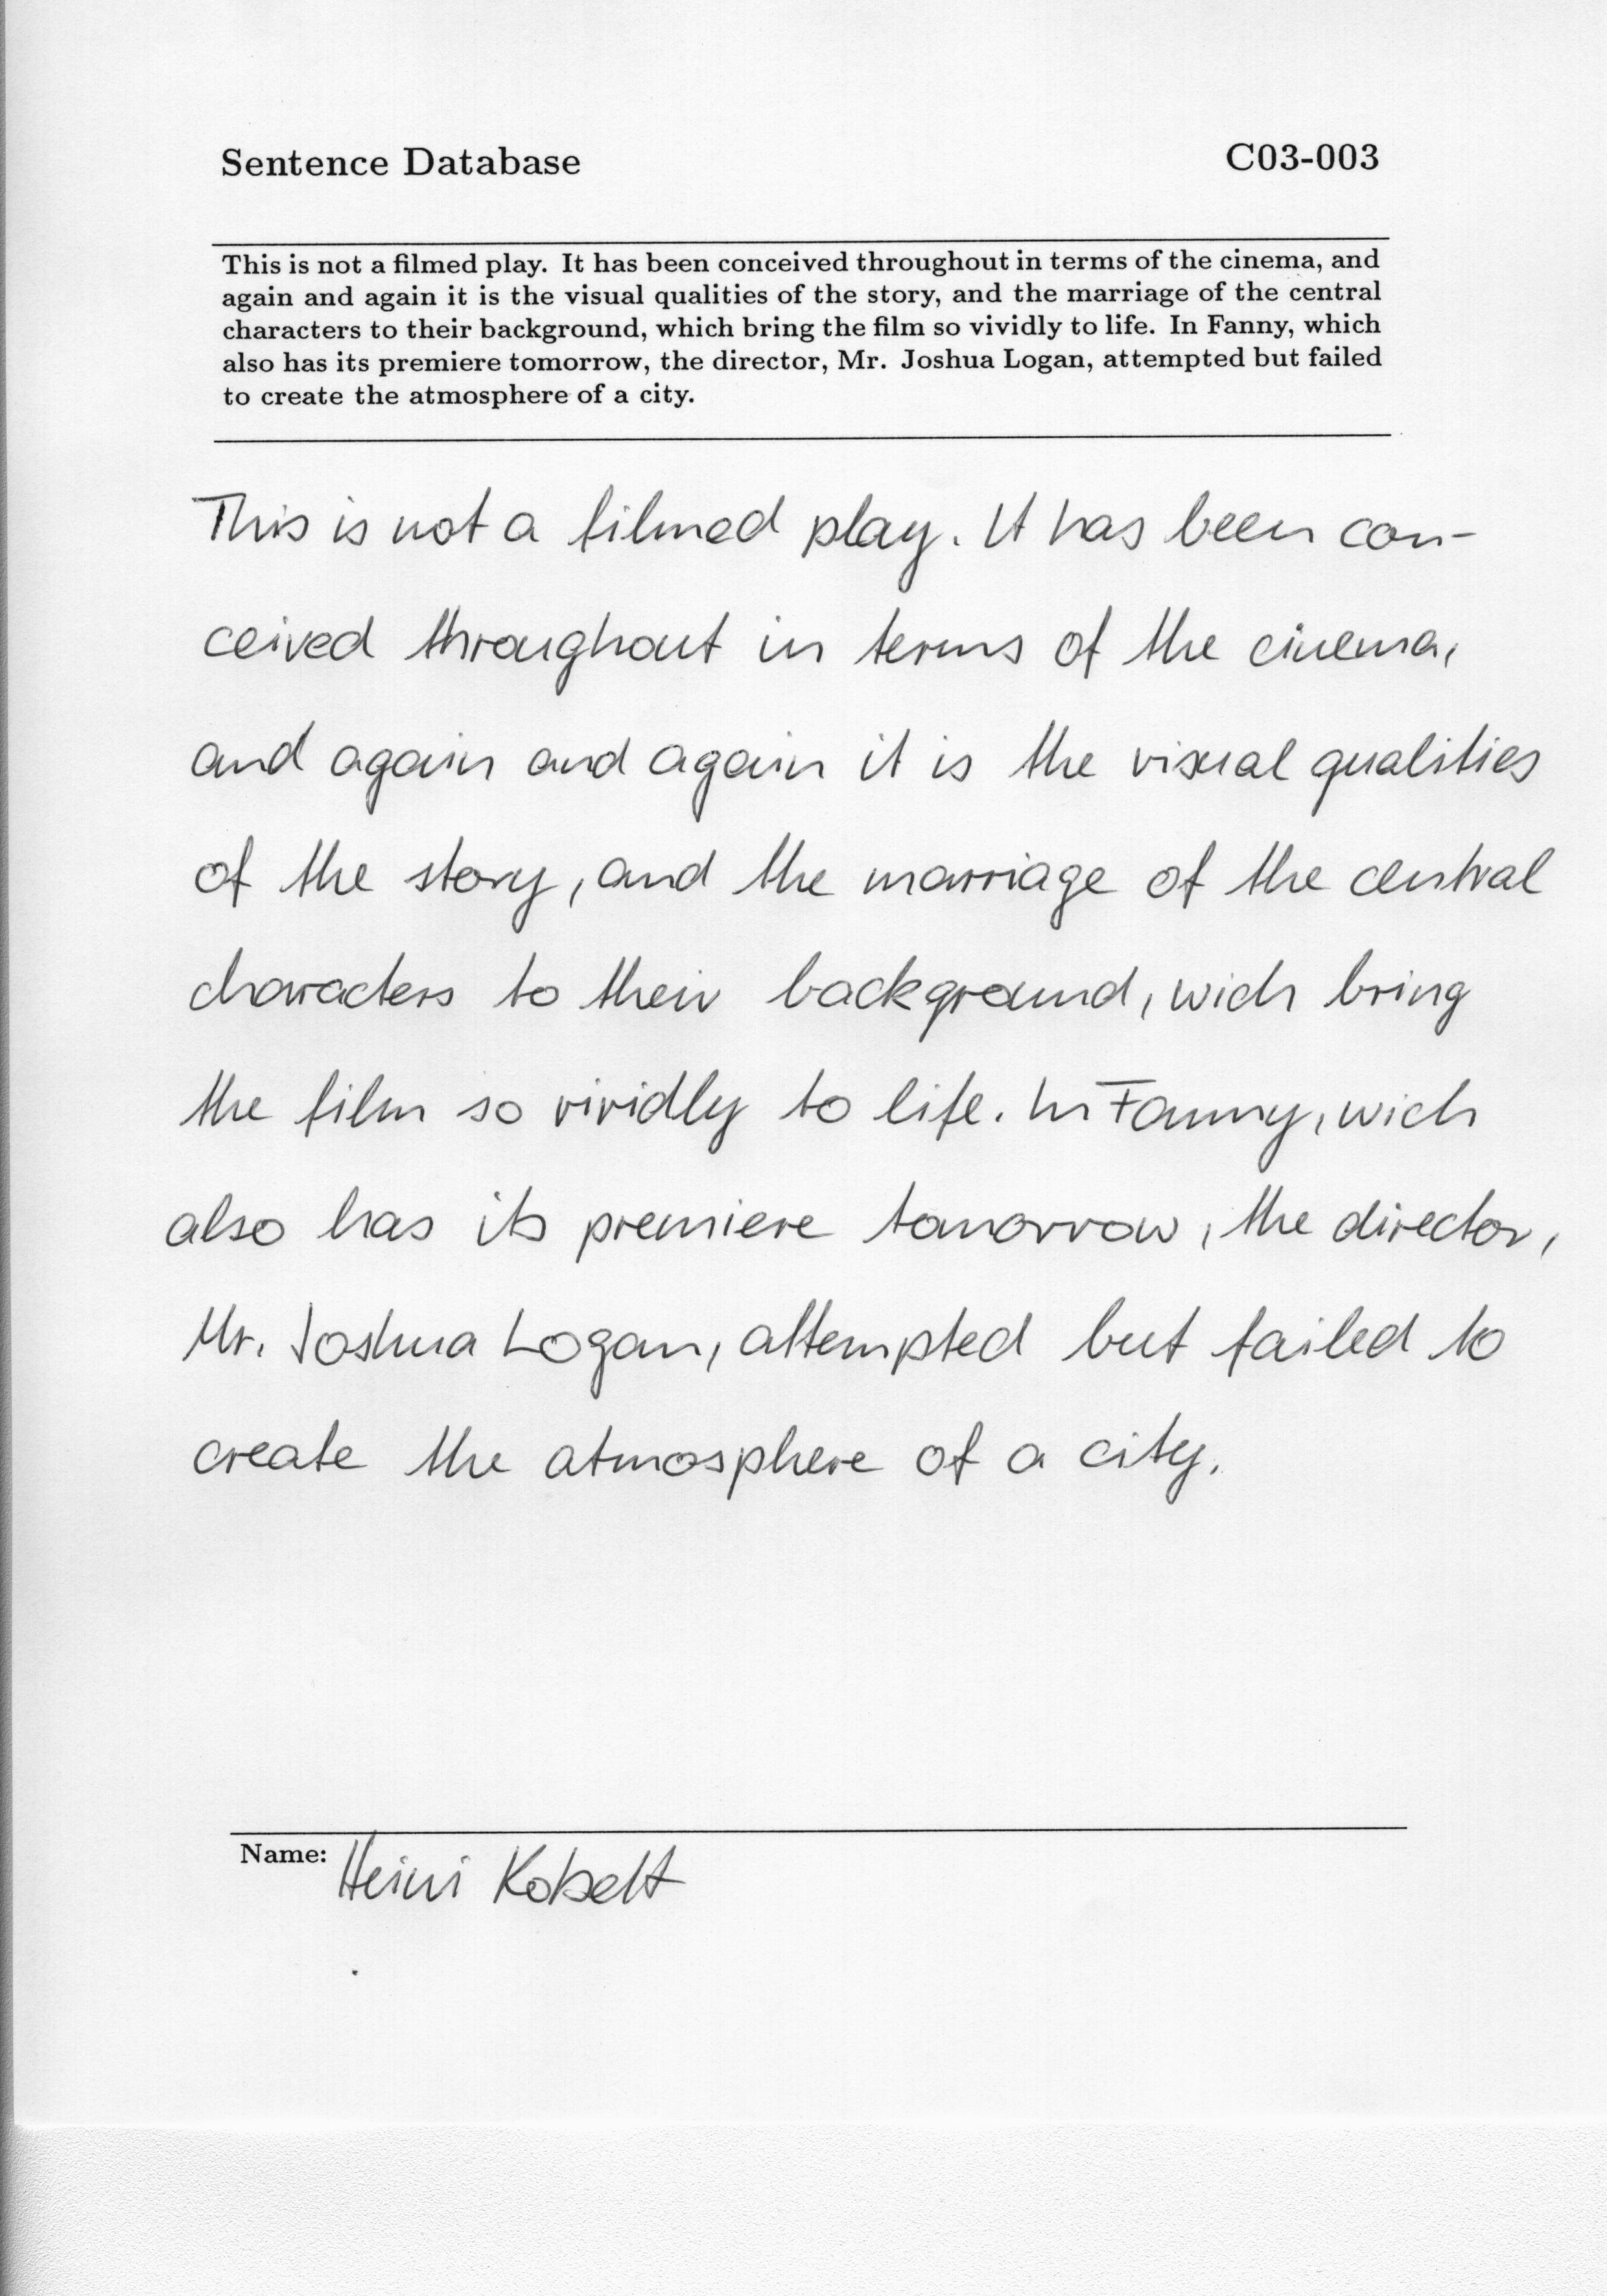 Sentence Database C03-003
This is not a filmed play. It has been conceived throughout in terms of the cinema, and
again and again it is the visual qualities of the story, and the marriage of the central
characters to their background, which bring the film so vividly to life. In Fanny, which
also has its premiere tomorrow, the director, Mr. Joshua Logan, attempted but failed
to create the atmosphere of a city.
This is not a filmed play. It has been con-
ceived throughout in terms of the cinema,
and again and again it is the visual qualities
of the story, and the marriage of the central
characters to their background, wich bring
the film so vividly to life. In Fanny, wich
also has its premiere tomorrow, the director,
Mr. Joshua Logan, attempted but failed to
create the atmosphere of a city.
Name: Heini Kobelt